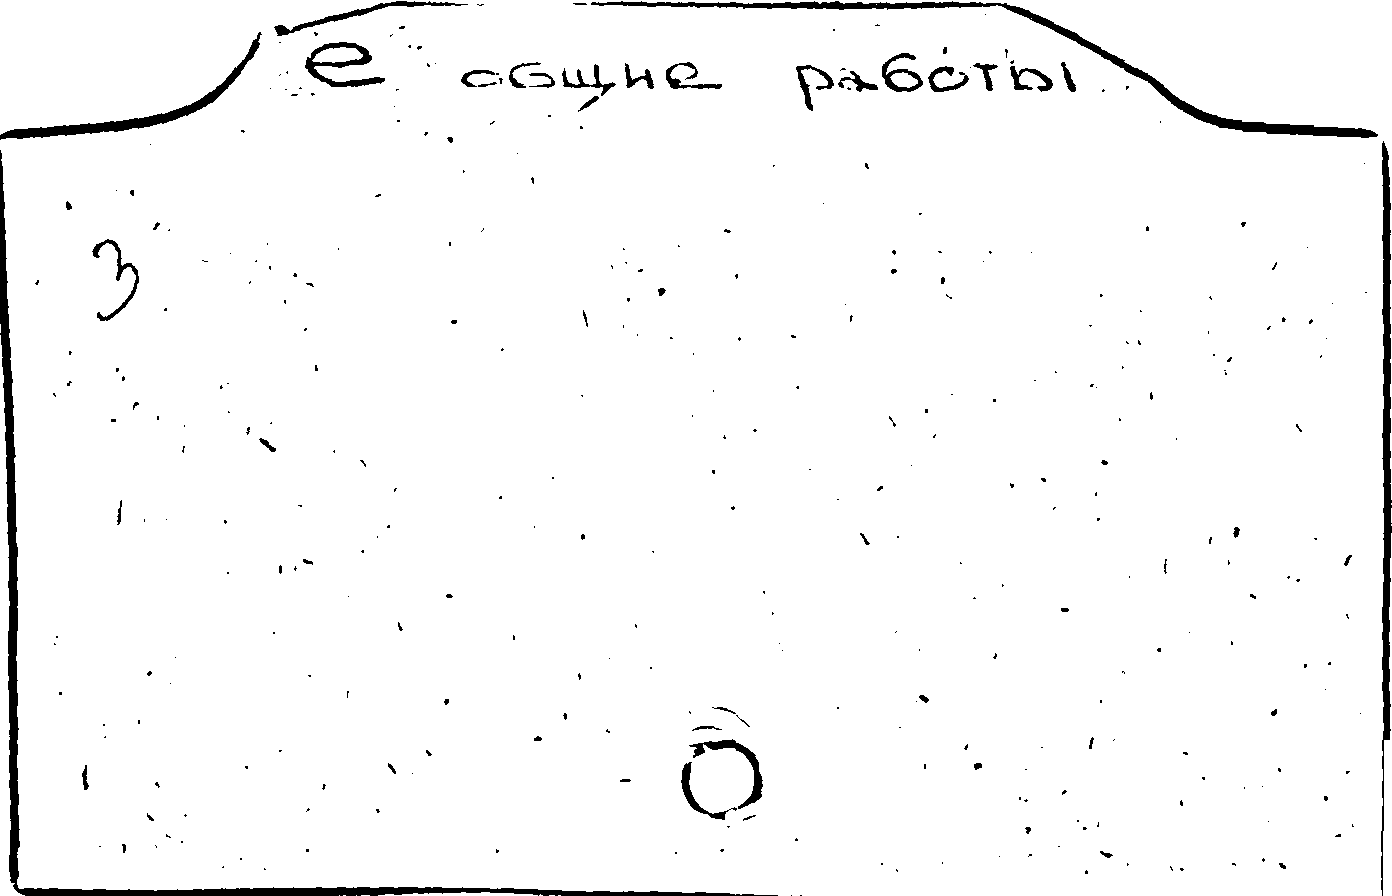 е общие работы
3